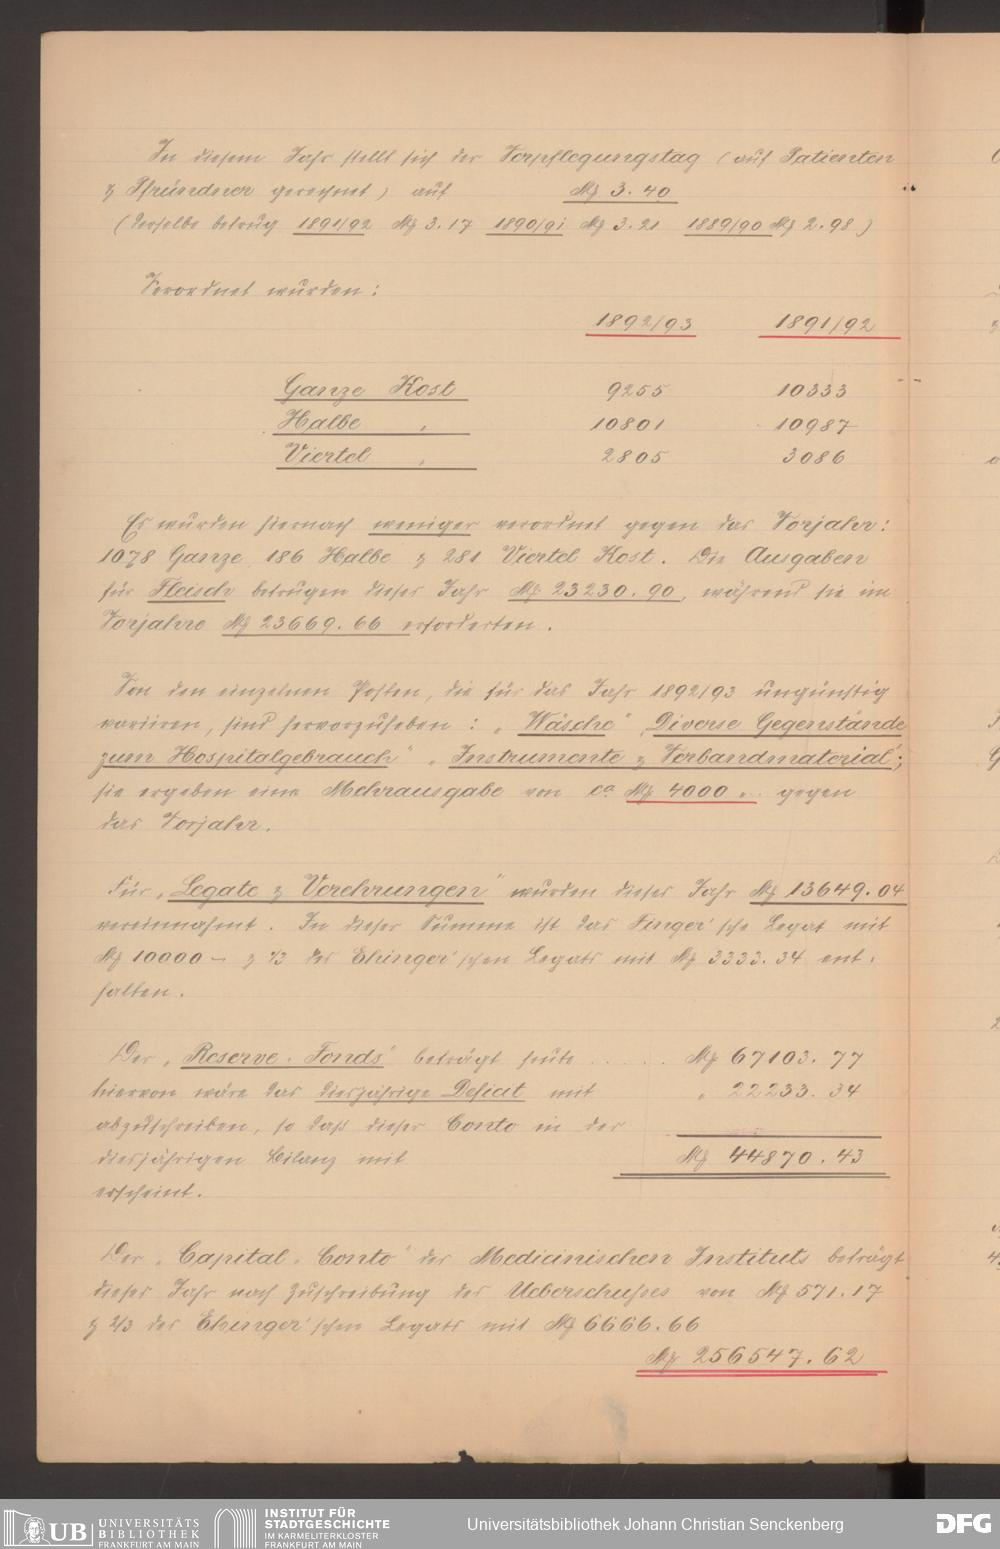 In diesem Jahr stellt sich der Verpflegungstag (auf Patienten
& Pfründner gerechnet) auf M 3.40
(derselbe betrug 1891/92 M 3.17 1890/91 M 3.21 1889/90 M 2.98)
Verordnet wurden:
1892/93 1891/92
Ganze Kost 9255 10333
Halbe " 10801 10987
Viertel " 2805 3086
Es wurden hiernach weniger verordnet gegen das Vorjahr:
1078 Ganze, 186 Halbe & 281 Viertel Kost. Die Ausgaben
für Fleisch betrugen dieses Jahr M 23230.90, während sie im
Vorjahre M 23669.66 erforderten.
Von den einzelnen Posten, die für das Jahr 1892/93 ungünstig
variiren, sind hervorzuheben: „Wäsche" „Diverse Gegenstände
zum Hospitalgebrauch" „Instrumente & Verbandmaterial";
sie ergeben eine Mehrausgabe von ca M 4000 „. gegen
das Vorjahr.
Für „Legate & Verehrungen" wurden dieses Jahr M 13649.04
vereinnahmt. In dieser Summe ist das Finger'sche Legat mit
M 10000 – & 1/3 des Ehinger'schen Legats mit M 3333.34 ent-
halten.
Der „Reserve-Fonds" beträgt heute ..... M 67103.77
hiervon wäre das diesjährige Deficit mit " 22233.34
abzuschreiben, so daß dieser Conto in der
diesjährigen Bilanz mit M 44870.43
erscheint.
Der „Capital-Conto" des Medicinischen Instituts beträgt
dieses Jahr nach Zuschreibung des Ueberschußes von M 571.17
& 2/3 des Ehinger'schen Legats mit M 6666.66
M 256547.62
UB UNIVERSITÄTS
BIBLIOTHEK
FRANKFURT AM MAIN
INSTITUT FÜR
STADTGESCHICHTE
IM KARMELITERKLOSTER
FRANKFURT AM MAIN
Universitätsbibliothek Johann Christian Senckenberg
DFG